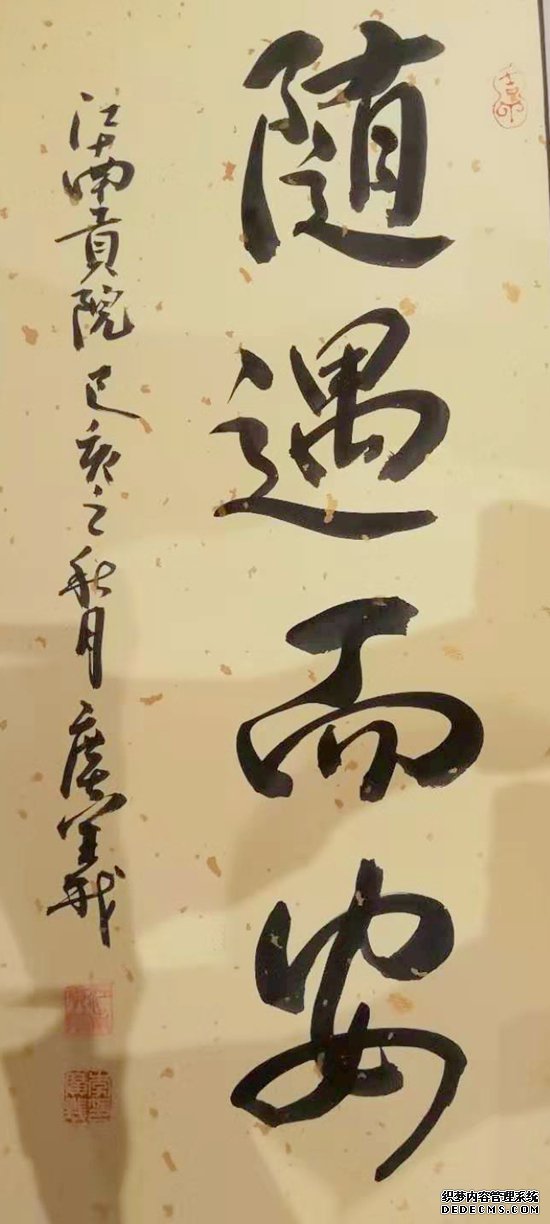 随遇而安
江南贡院己亥之秋月广义
织梦内容管理系统
DEDECMS.COM